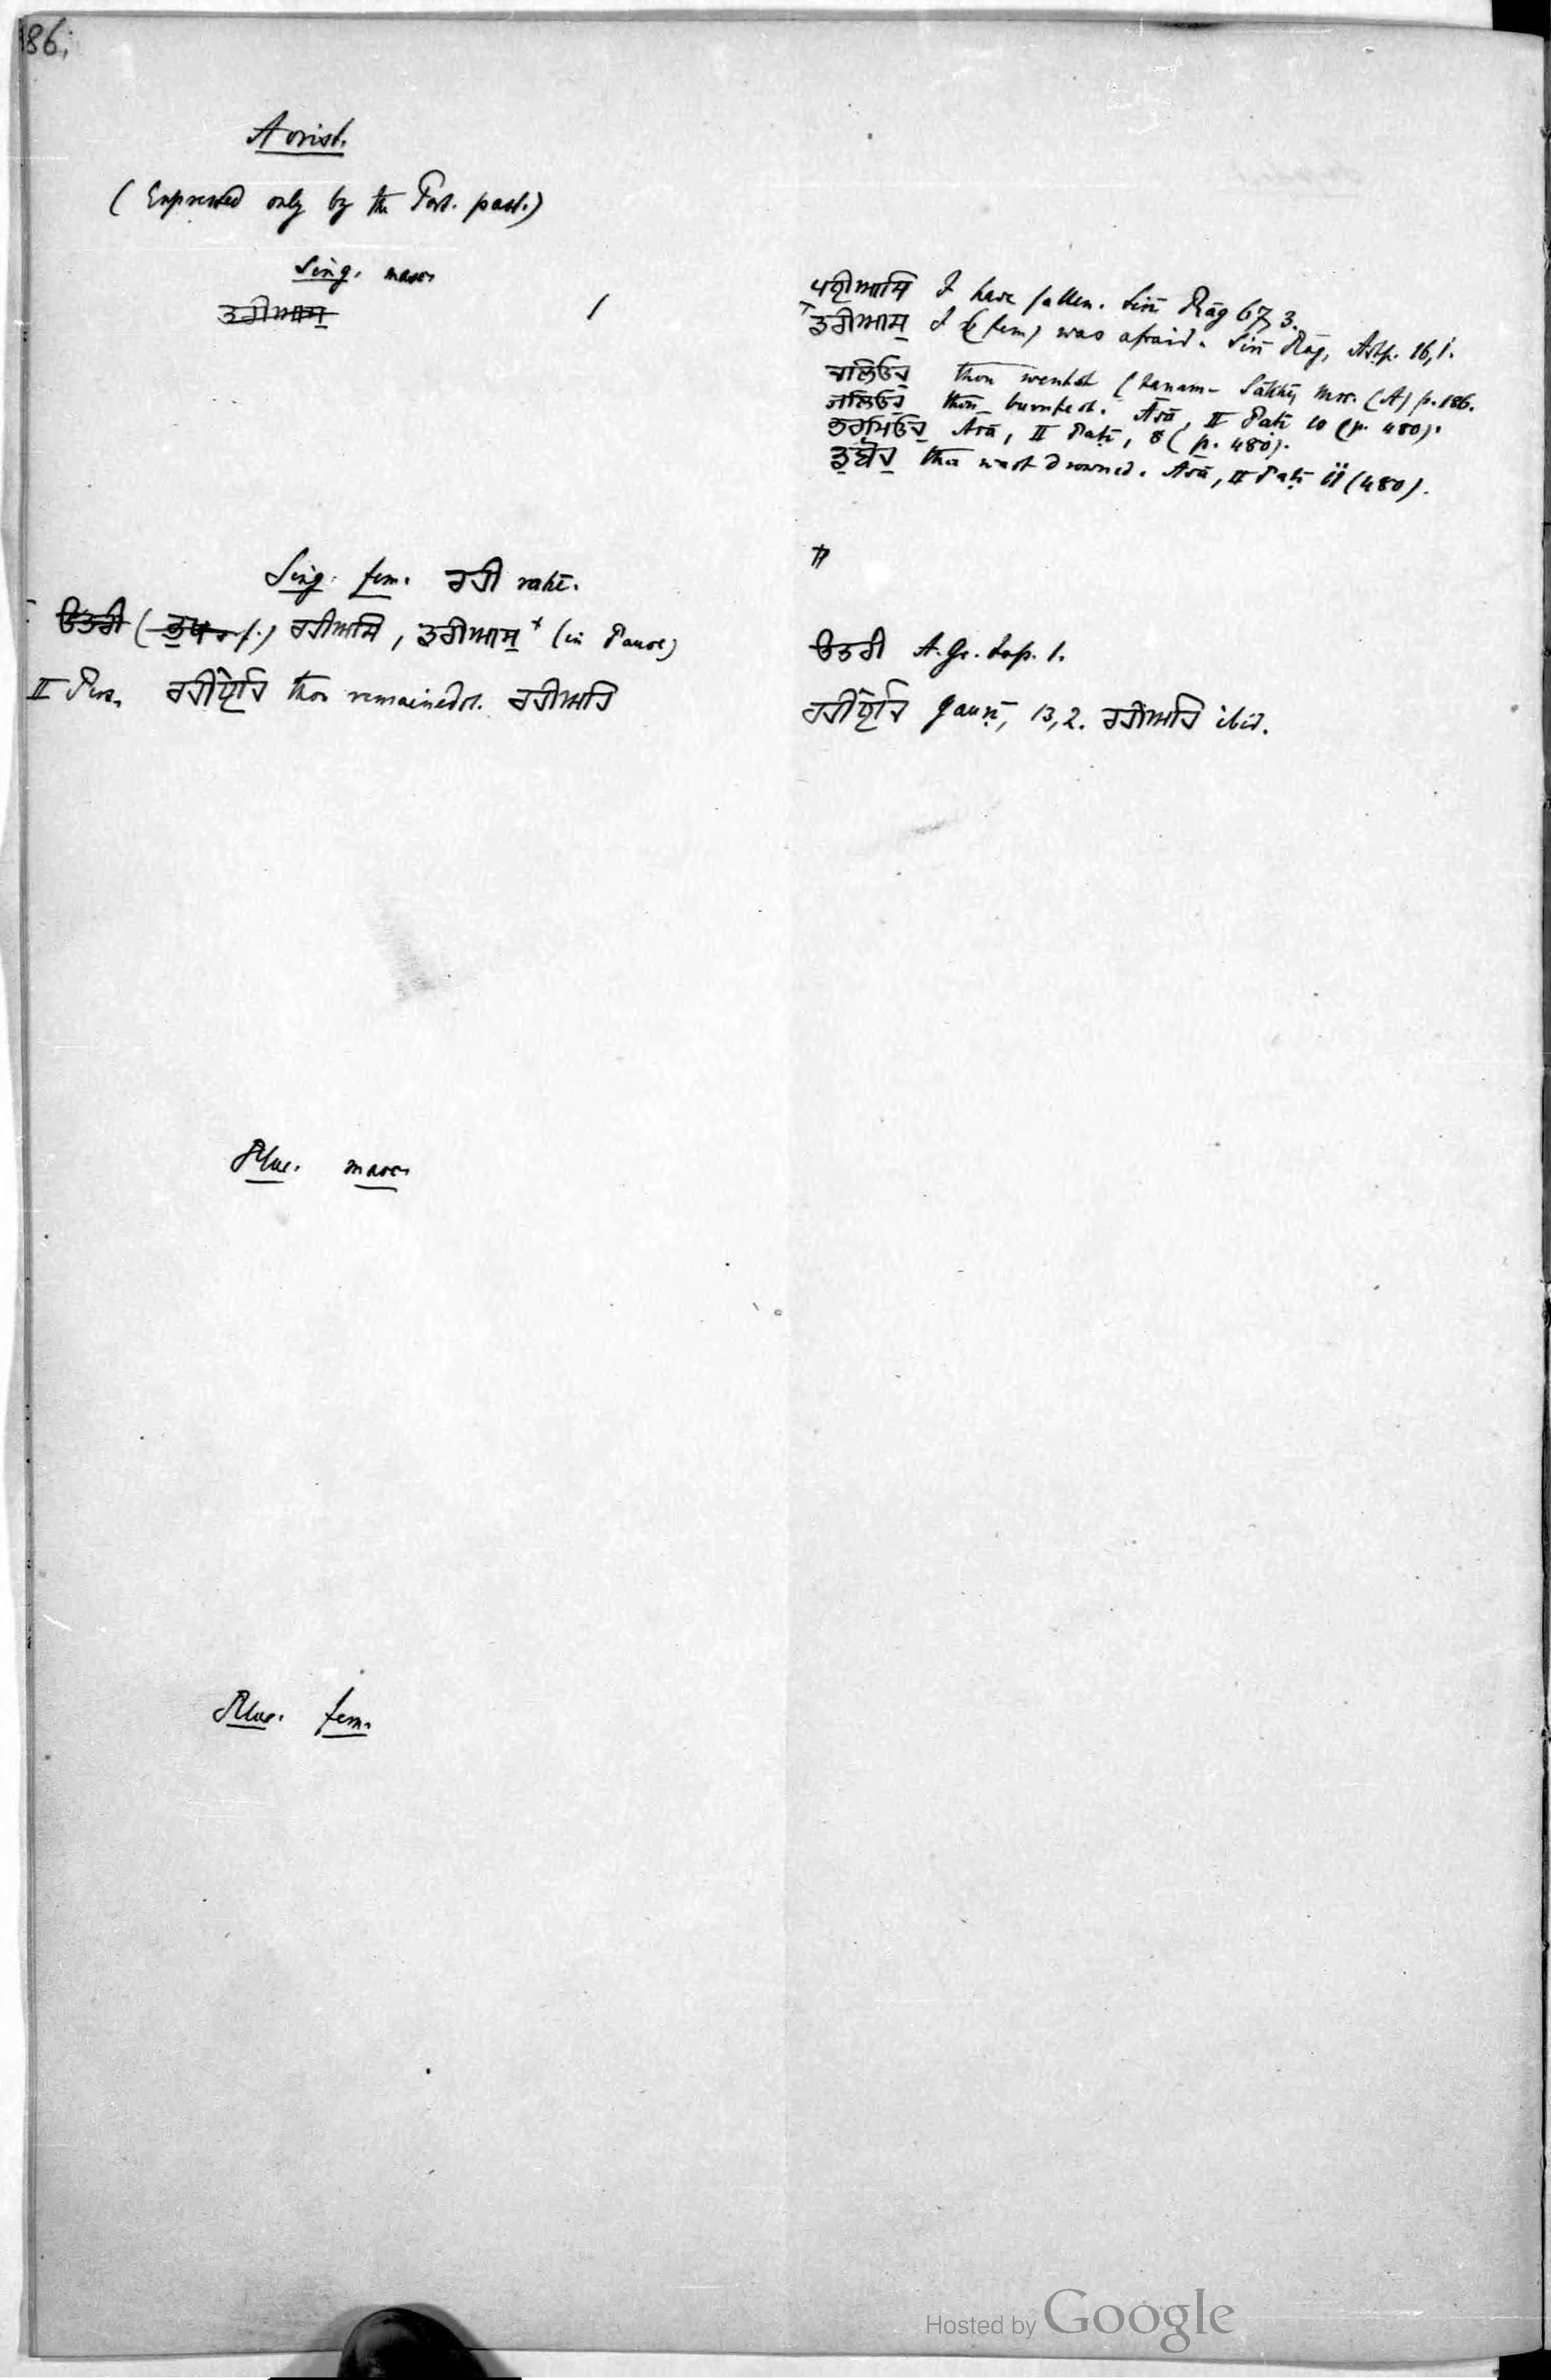 86.
Aorist.
(Expressed only by the Part. past.)
Sing. masc.
ਡਰੀਆਸੁ
ਪਈਆਸਿ I have fallen. Sirī Rāg 67, 3.
ਡਰੀਆਸੁ I (fem) was afraid. Sirī Rāg, Aṣṭp. 16,1.
ਚਲਿਓਹੁ thou wentst (Janam-Sākhī, Mss. (A) p. 186.
ਜਲਿਓਹੁ thou burntest. Āsā, II Paṭī 10 (p. 480).
ਭਰਮਿਓਹੁ Āsā, II Paṭī, 8 (p. 480).
ਡੁਬੋਹੁ thou wast drowned. Āsā, II Paṭī 11 (480).
Sing. fem. ਰਹੀ rahī.
ਉਤਰੀ ( f.) ਰਹੀਅਸਿ, ਡਰੀਆਸੁ + (in Pause)
II Pers. ਰਹੀਏਹਿ thou remainedst. ਰਹੀਅਹਿ
ਉਤਰੀ A. Gr. Lap. 1.
ਰਹੀਏਹਿ Gauṛī, 13,2. ਰਹੀਅਹਿ ibid.
Plur. masc.
Plur. fem.
Hosted by Google